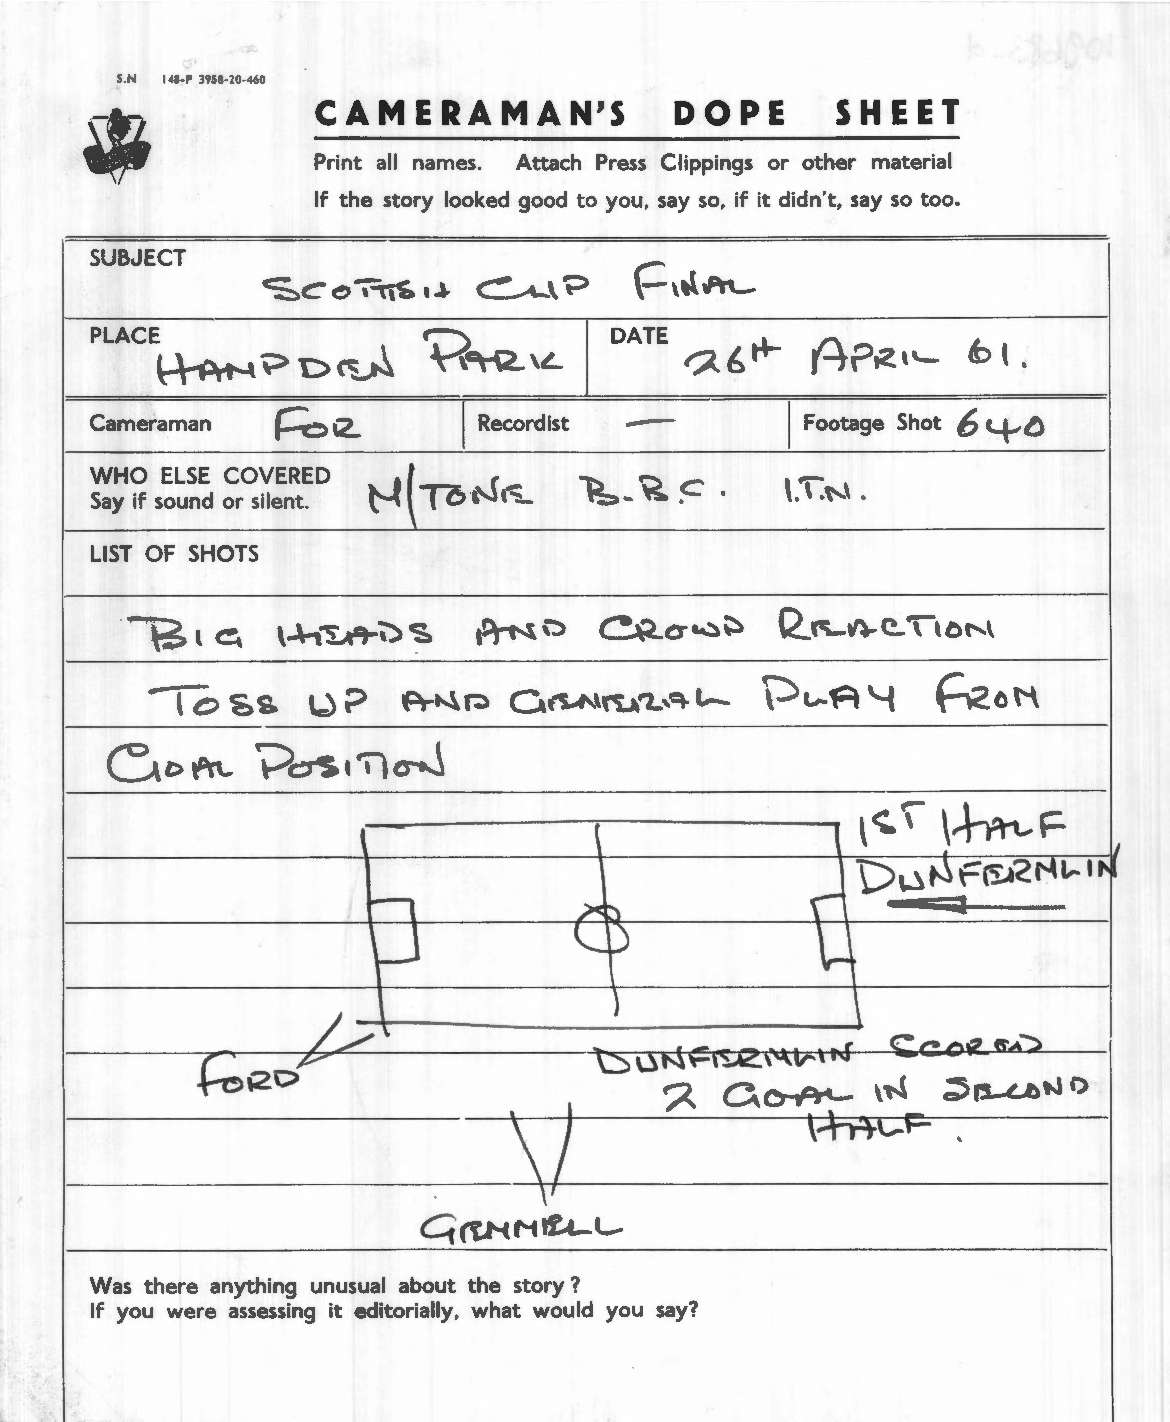 S.N 148-P 3958-20-460
CAMERAMAN'S DOPE SHEET
Print all names. Attach Press Clippings or other material
If the story looked good to you, say so, if it didn't, say so too.
SUBJECT
SCOTTISH CUP FINAL
PLACE HAMPDEN PARK DATE 26TH APRIL 61.
Cameraman FOR Recordist — Footage Shot 640
WHO ELSE COVERED
Say if sound or silent. M/TONE B.B.C. I.T.N.
LIST OF SHOTS
BIG HEADS AND CROWD REACTION
TOSS UP AND GENERAL PLAY FROM
GOAL POSITION
1ST HALF
DUNFERMLIN
FORD
DUNFERMLIN SCORED
2 GOAL IN SECOND
HALF.
GEMMELL
Was there anything unusual about the story?
If you were assessing it editorially, what would you say?